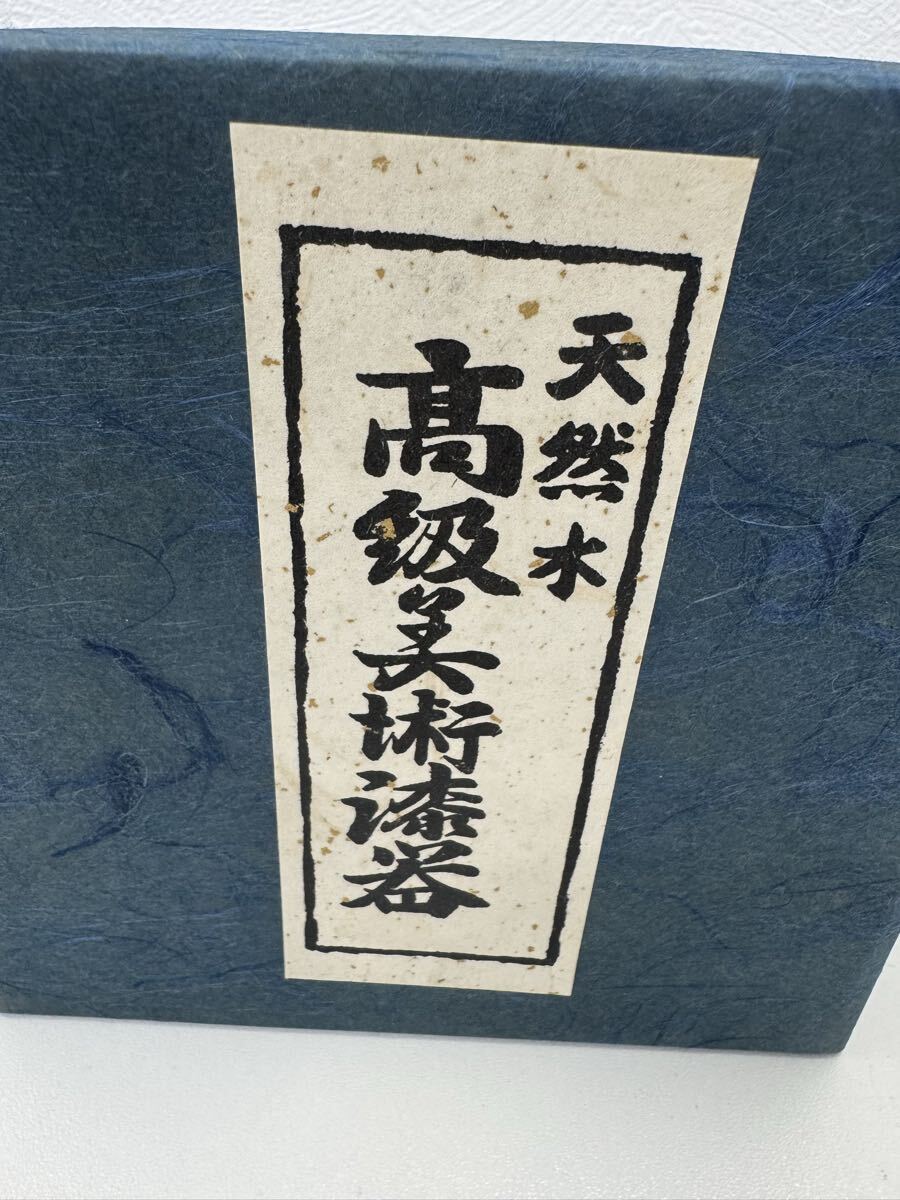 天然木
髙級美術漆器